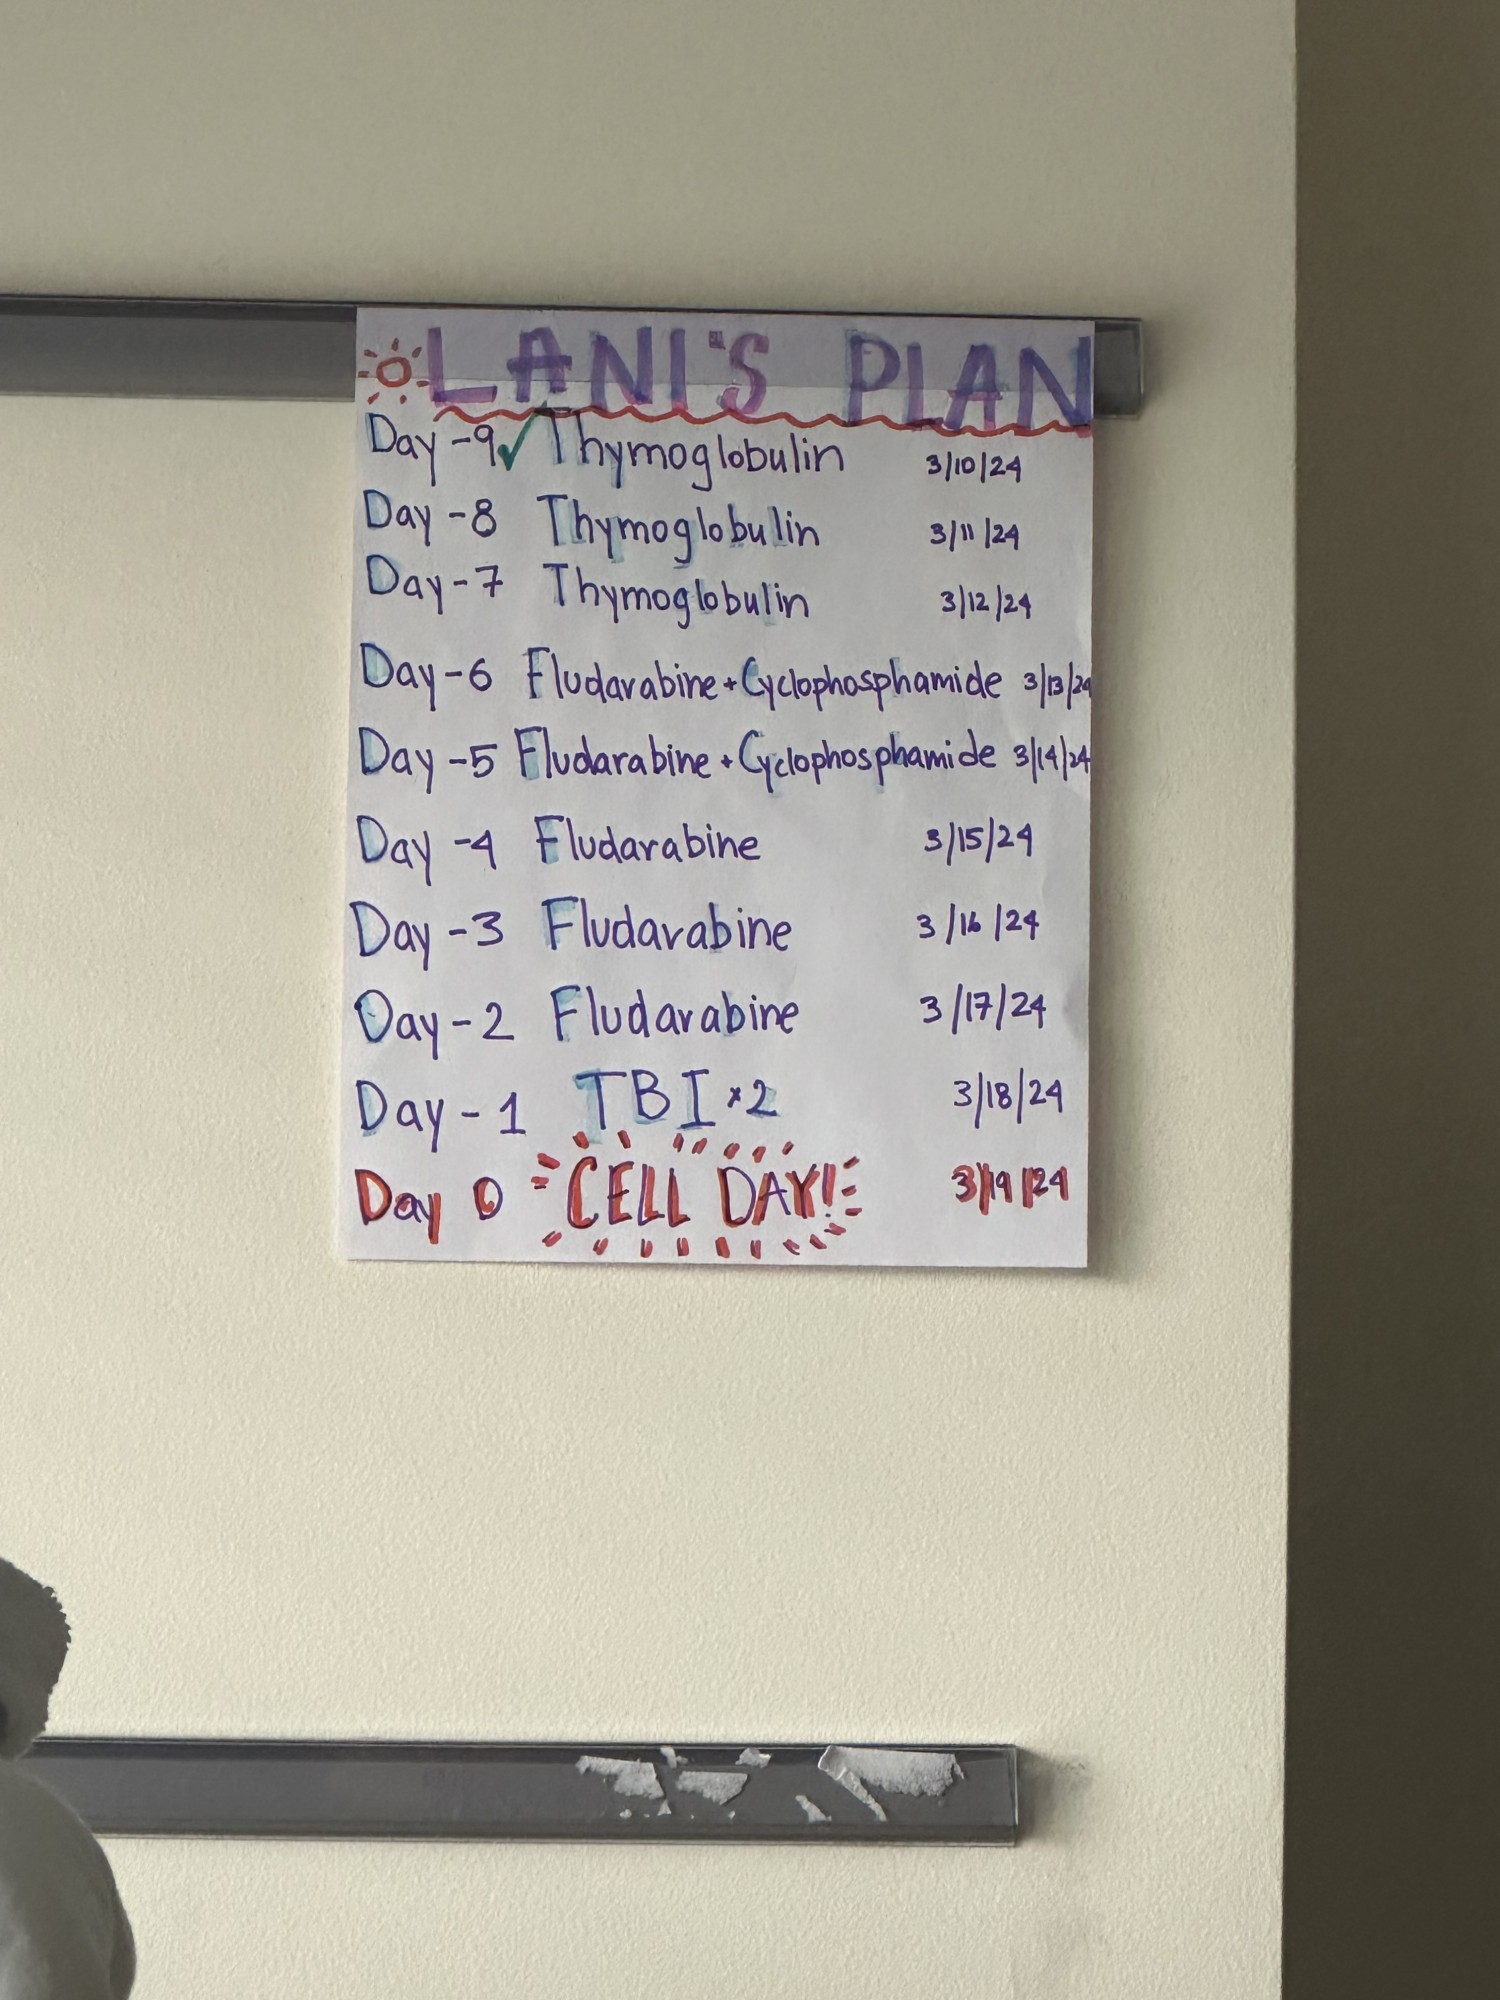 LANI'S PLAN
Day -9 ✓ Thymoglobulin 3/10/24
Day -8 Thymoglobulin 3/11/24
Day -7 Thymoglobulin 3/12/24
Day -6 Fludarabine + Cyclophosphamide 3/13/24
Day -5 Fludarabine + Cyclophosphamide 3/14/24
Day -4 Fludarabine 3/15/24
Day -3 Fludarabine 3/16/24
Day -2 Fludarabine 3/17/24
Day -1 TBI x2 3/18/24
Day 0 CELL DAY! 3/19/24